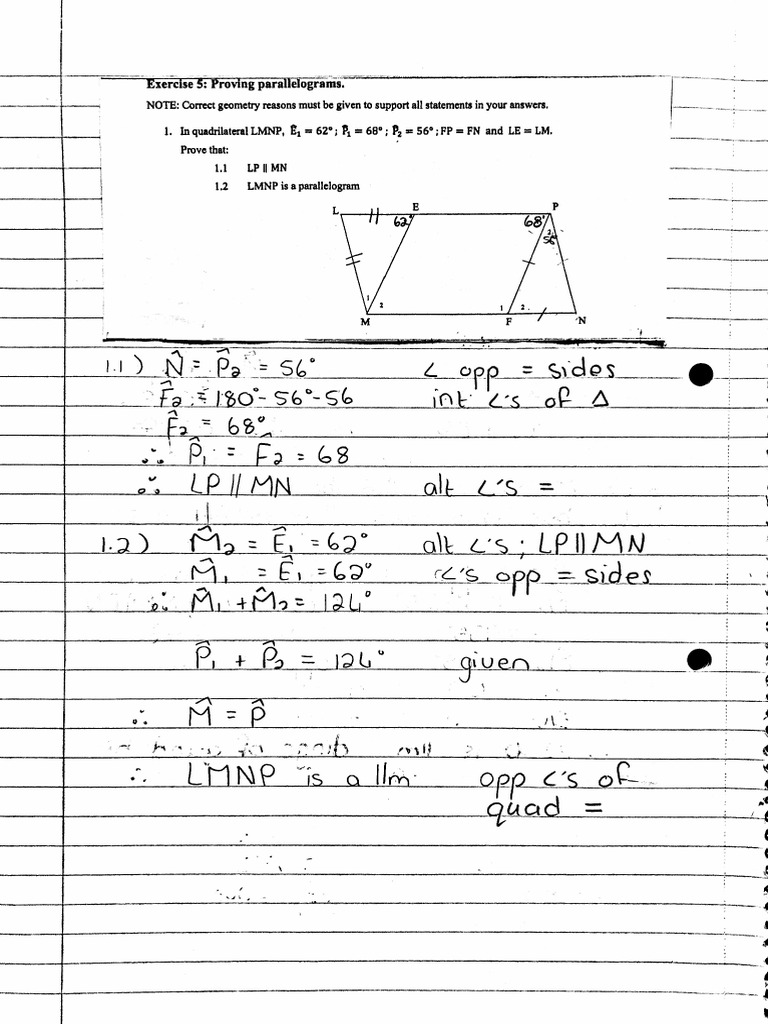 Exercise 5: Proving parallelograms.
NOTE: Correct geometry reasons must be given to support all statements in your answers.
1. In quadrilateral LMNP, Ê₁ = 62° ; P̂₁ = 68° ; P̂₂ = 56° ; FP = FN and LE = LM.
Prove that:
1.1 LP || MN
1.2 LMNP is a parallelogram
L E P
62° 68° 2 56°
1 2 1 2
M F N
1.1) N̂ = P̂₂ = 56° ∠ opp = sides
F̂₂ = 180° - 56° - 56 int ∠'s of Δ
F̂₂ = 68°
∴ P̂₁ = F̂₂ = 68
∴ LP // MN alt ∠'s =
1.2) M̂₂ = Ê₁ = 62° alt ∠'s ; LP || MN
M̂₁ = Ê₁ = 62° ∠'s opp = sides
∴ M̂₁ + M̂₂ = 124°
P̂₁ + P̂₂ = 124° given
∴ M̂ = P̂
∴ LMNP is a llm opp ∠'s of
quad =